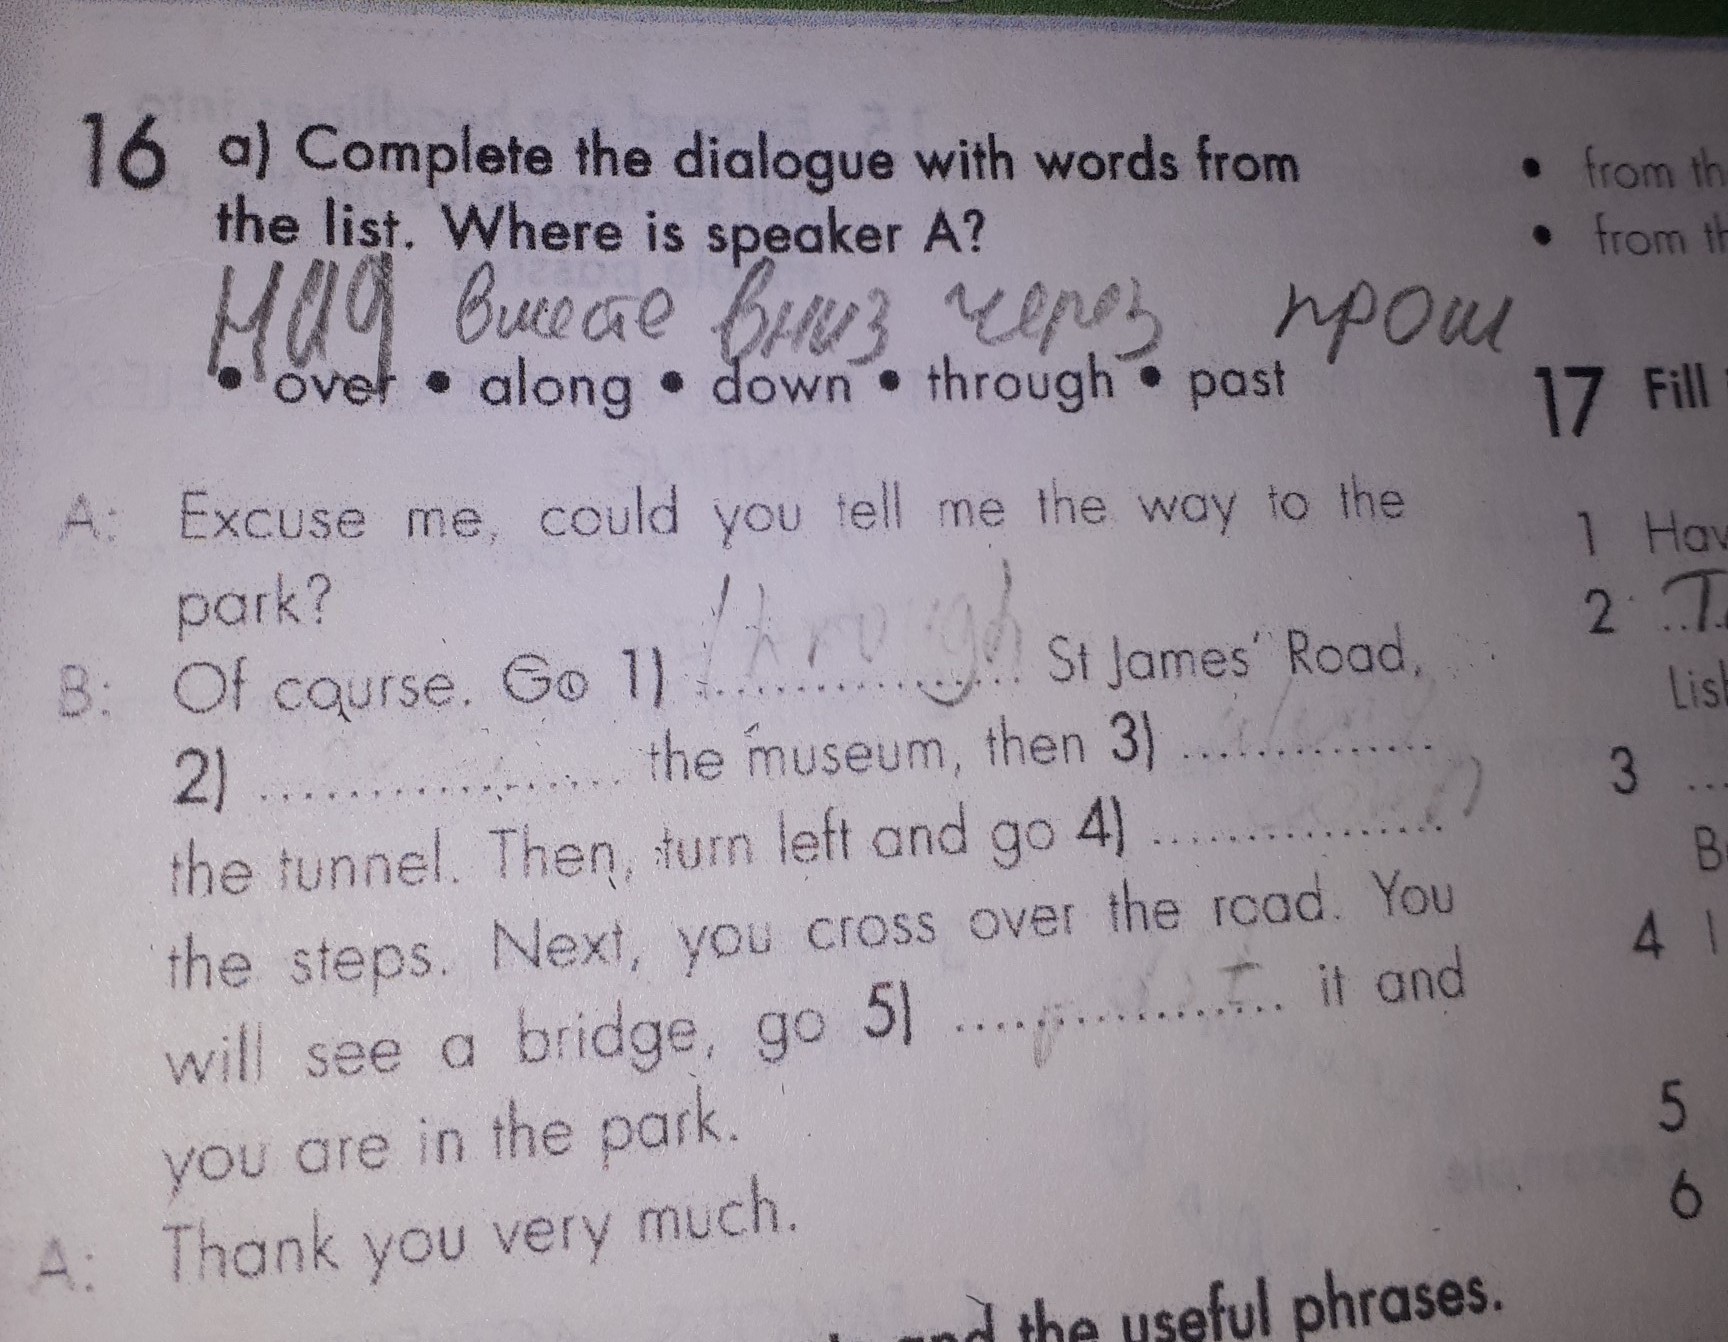 16 a) Complete the dialogue with words from
the list. Where is speaker A?
над вместе вниз через прош
• over • along • down • through • past
A: Excuse me, could you tell me the way to the
park?
B: Of course. Go 1) through St James' Road,
2) .................... the museum, then 3) along
the tunnel. Then, turn left and go 4) ....................
the steps. Next, you cross over the road. You
will see a bridge, go 5) past it and
you are in the park.
A: Thank you very much.
and the useful phrases.
• from th
• from th
17 Fill
1 Hav
2
Lis
3 ...
B
4 I
5
6